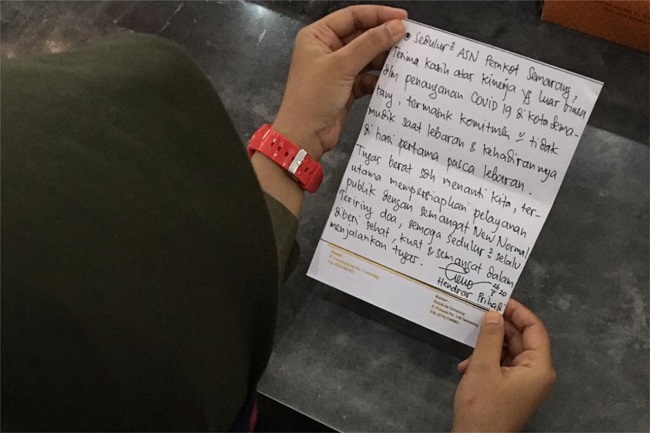 Sedulur² ASN Pemkot Semarang,
Terima kasih atas kinerja yg luar biasa
dlm penanganan Covid 19 di kota Sema-
rang, termasuk komitmen u tidak
mudik saat lebaran & kehadirannya
di hari pertama pasca lebaran.
Tugas berat sdh menanti kita, ter-
utama mempersiapkan pelayanan
publik dengan semangat New Normal
Teriring doa, semoga sedulur² selalu
diberi sehat, kuat & semangat dalam
menjalankan tugas.
Hendrar Prihadi